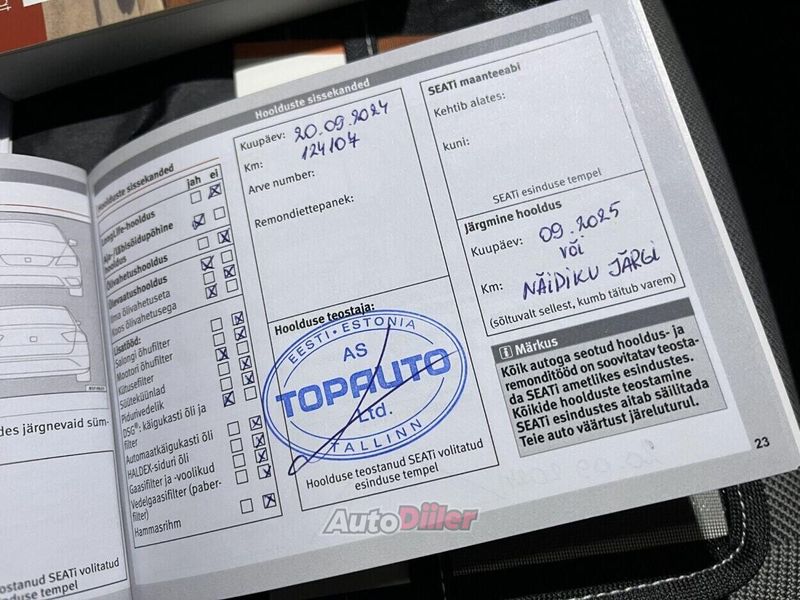 Hoolduste sissekanded
Hoolduste sissekanded
jah ei
LongLife-hooldus
Aja-/läbisõidupõhine
hooldus
Õlivahetushooldus
Ülevaatushooldus
Ilma õlivahetuseta
Koos õlivahetusega
Lisatööd:
Salongi õhufilter
Mootori õhufilter
Kütusefilter
Süüteküünlad
Pidurivedelik
DSG®: käigukasti õli ja
filter
Automaatkäigukasti õli
HALDEX-siduri õli
Gaasifilter ja -voolikud
Vedelgaasifilter (paber-
filter)
Hammasrihm
Kuupäev: 20.09.2024
Km: 124107
Arve number:
Remondiettepanek:
Hoolduse teostaja:
EESTI • ESTONIA
AS
TOPAUTO
Ltd.
TALLINN
Hoolduse teostanud SEATi volitatud
esinduse tempel
SEATi maanteeabi
Kehtib alates:
kuni:
SEATi esinduse tempel
Järgmine hooldus
Kuupäev: 09.2025
või
Km: NÄIDIKU JÄRGI
(sõltuvalt sellest, kumb täitub varem)
i Märkus
Kõik autoga seotud hooldus- ja
remonditööd on soovitatav teosta-
da SEATi ametlikes esindustes.
Kõikide hoolduste teostamine
SEATi esindustes aitab säilitada
Teie auto väärtust järeluturul.
23
des järgnevaid süm-
ostanud SEATi volitatud
esinduse tempel
AutoDiiler